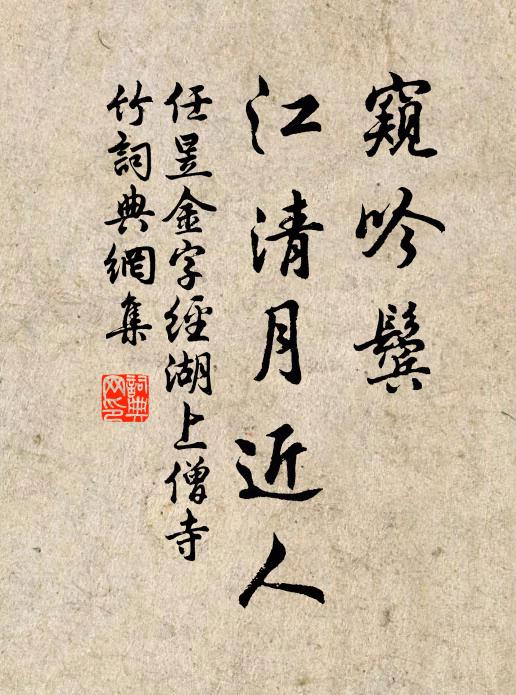 窺吟鬢
江清月近人
任昱金字經湖上僧寺
竹詞典網集
詞典網印